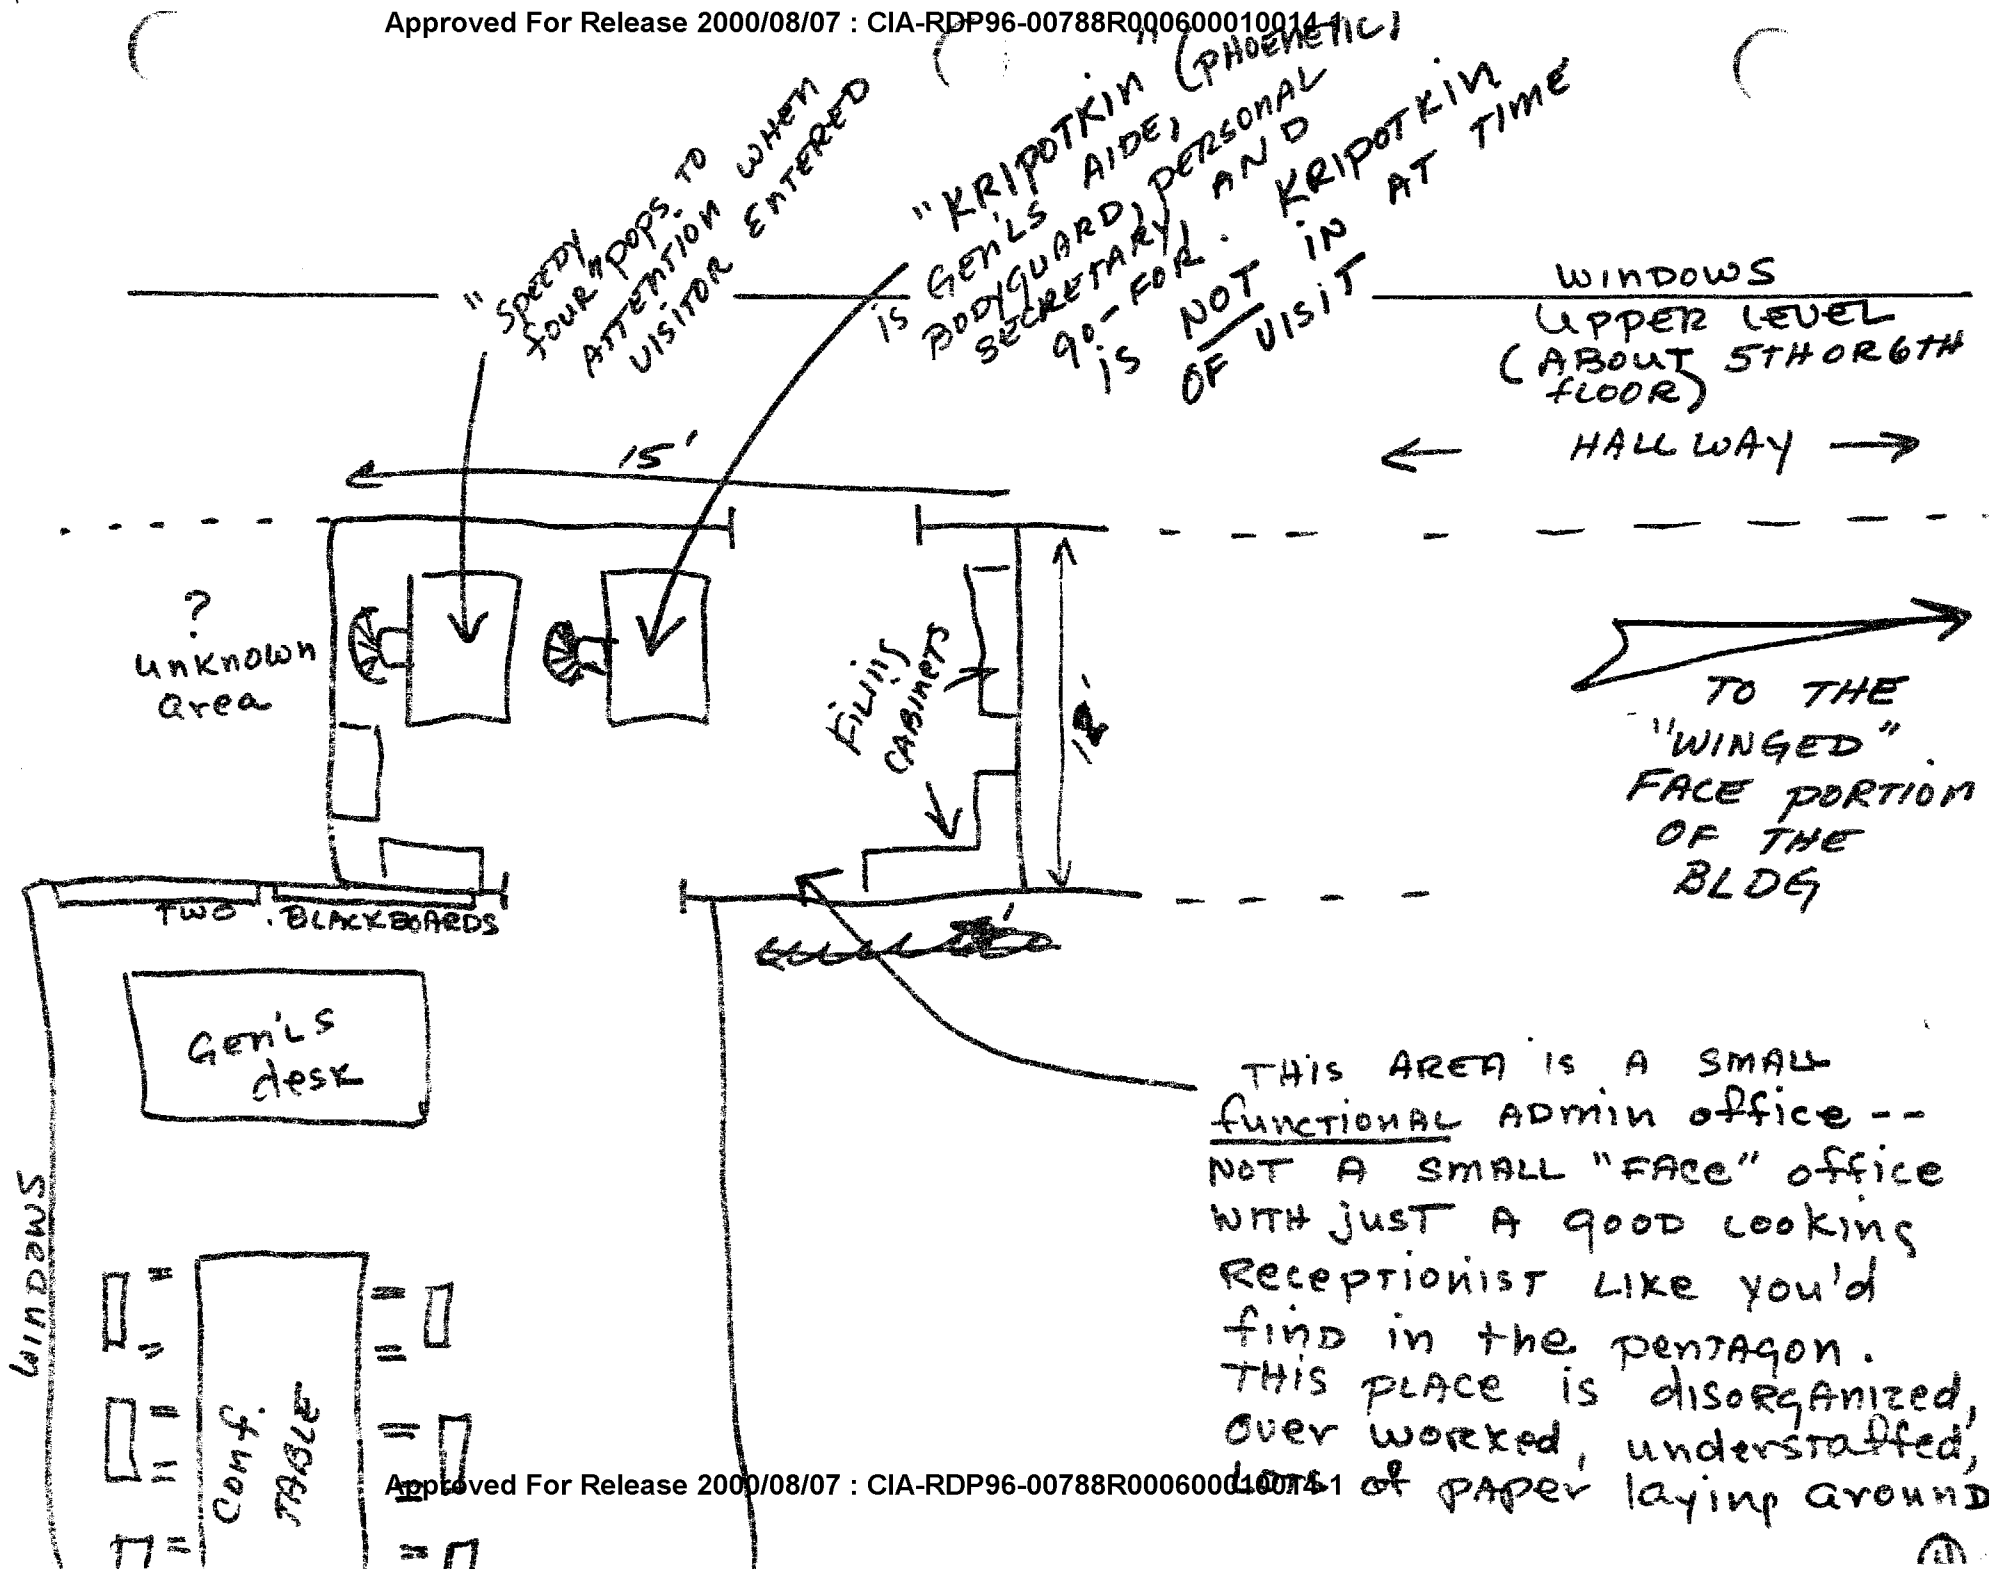 Approved For Release 2000/08/07 : CIA-RDP96-00788R000600010014-1
"SPEEDY
four" pops. TO
ATTENTION WHEN
VISITOR ENTERED
"KRIPOTKIN" (PHOENETIC)
is GEN'LS AIDE,
BODYGUARD, PERSONAL
SECRETARY, AND
go-FOR. KRIPOTKIN
is NOT IN AT TIME
OF VISIT
WINDOWS
UPPER LEVEL
(ABOUT 5TH OR 6TH
fLOOR)
HALLWAY
15'
?
unknown
area
FiLiNg
CABINETS
TO THE
"WINGED"
FACE PORTION
OF THE
BLDG
TWO BLACKBOARDS
Gen'LS
desk
WINDOWS
Conf.
TABLE
THIS AREA IS A SMALL
functionAL ADmin office --
NOT A SMALL "FACe" office
WITH just A gOOD Looking
ReceptionisT Like you'd
find in the penTAgon.
THIS pLACe is disorgAnized,
over worked, understaffed,
LOTS of PAPer laying arounD
Approved For Release 2000/08/07 : CIA-RDP96-00788R000600010014-1